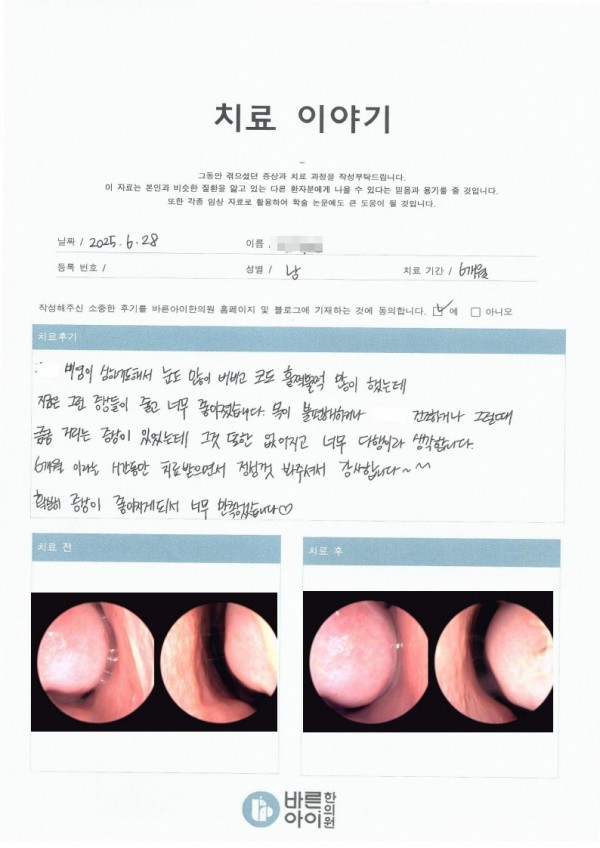 치료 이야기
그동안 겪으셨던 증상과 치료 과정을 작성부탁드립니다.
이 자료는 본인과 비슷한 질환을 앓고 있는 다른 환자분에게 나을 수 있다는 믿음과 용기를 줄 것입니다.
또한 각종 임상 자료로 활용하여 학술 논문에도 큰 도움이 될 것입니다.
날짜 / 2025. 6. 28 이름 /
등록 번호 / 성별 / 남 치료 기간 / 6개월
작성해주신 소중한 후기를 바른아이한의원 홈페이지 및 블로그에 기재하는 것에 동의합니다. ☑ 예 □ 아니오
치료후기
비염이 심하기도해서 눈도 많이 비비고 코도 훌쩍훌쩍 많이 했는데
지금은 그런 증상들이 줄고 너무 좋아졌습니다. 목이 불편해하거나 건조하거나 그럴때
큼큼 거리는 증상이 있었는데 그것 또한 없어지고 너무 다행이라 생각합니다.
6개월 이라는 시간동안 치료받으면서 정성껏 봐주셔서 감사합니다~^^
확실히 증상이 좋아지게되서 너무 만족했습니다♡
치료 전 치료 후
바른아이 한의원